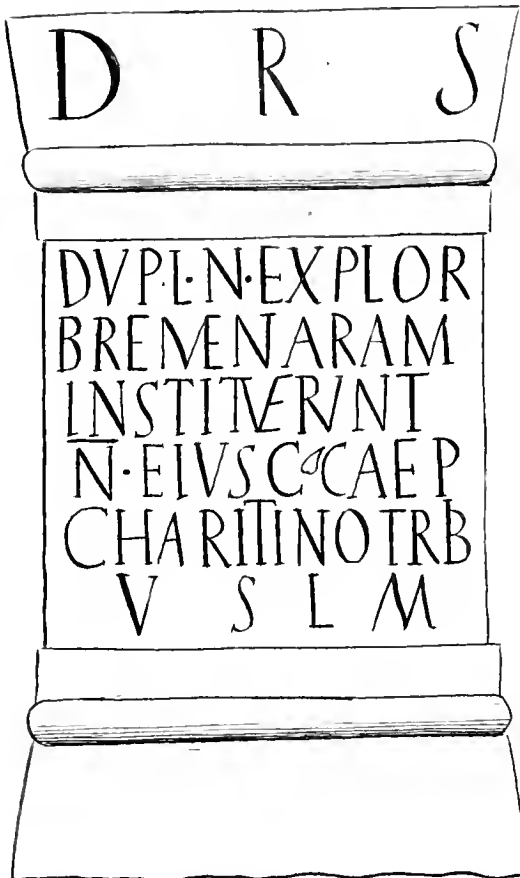 D R S
DVPL·N·EXPLOR
BREMENARAM
INSTITVERVNT
N·EIVS C CAEP
CHARITINO TRB
V S L M